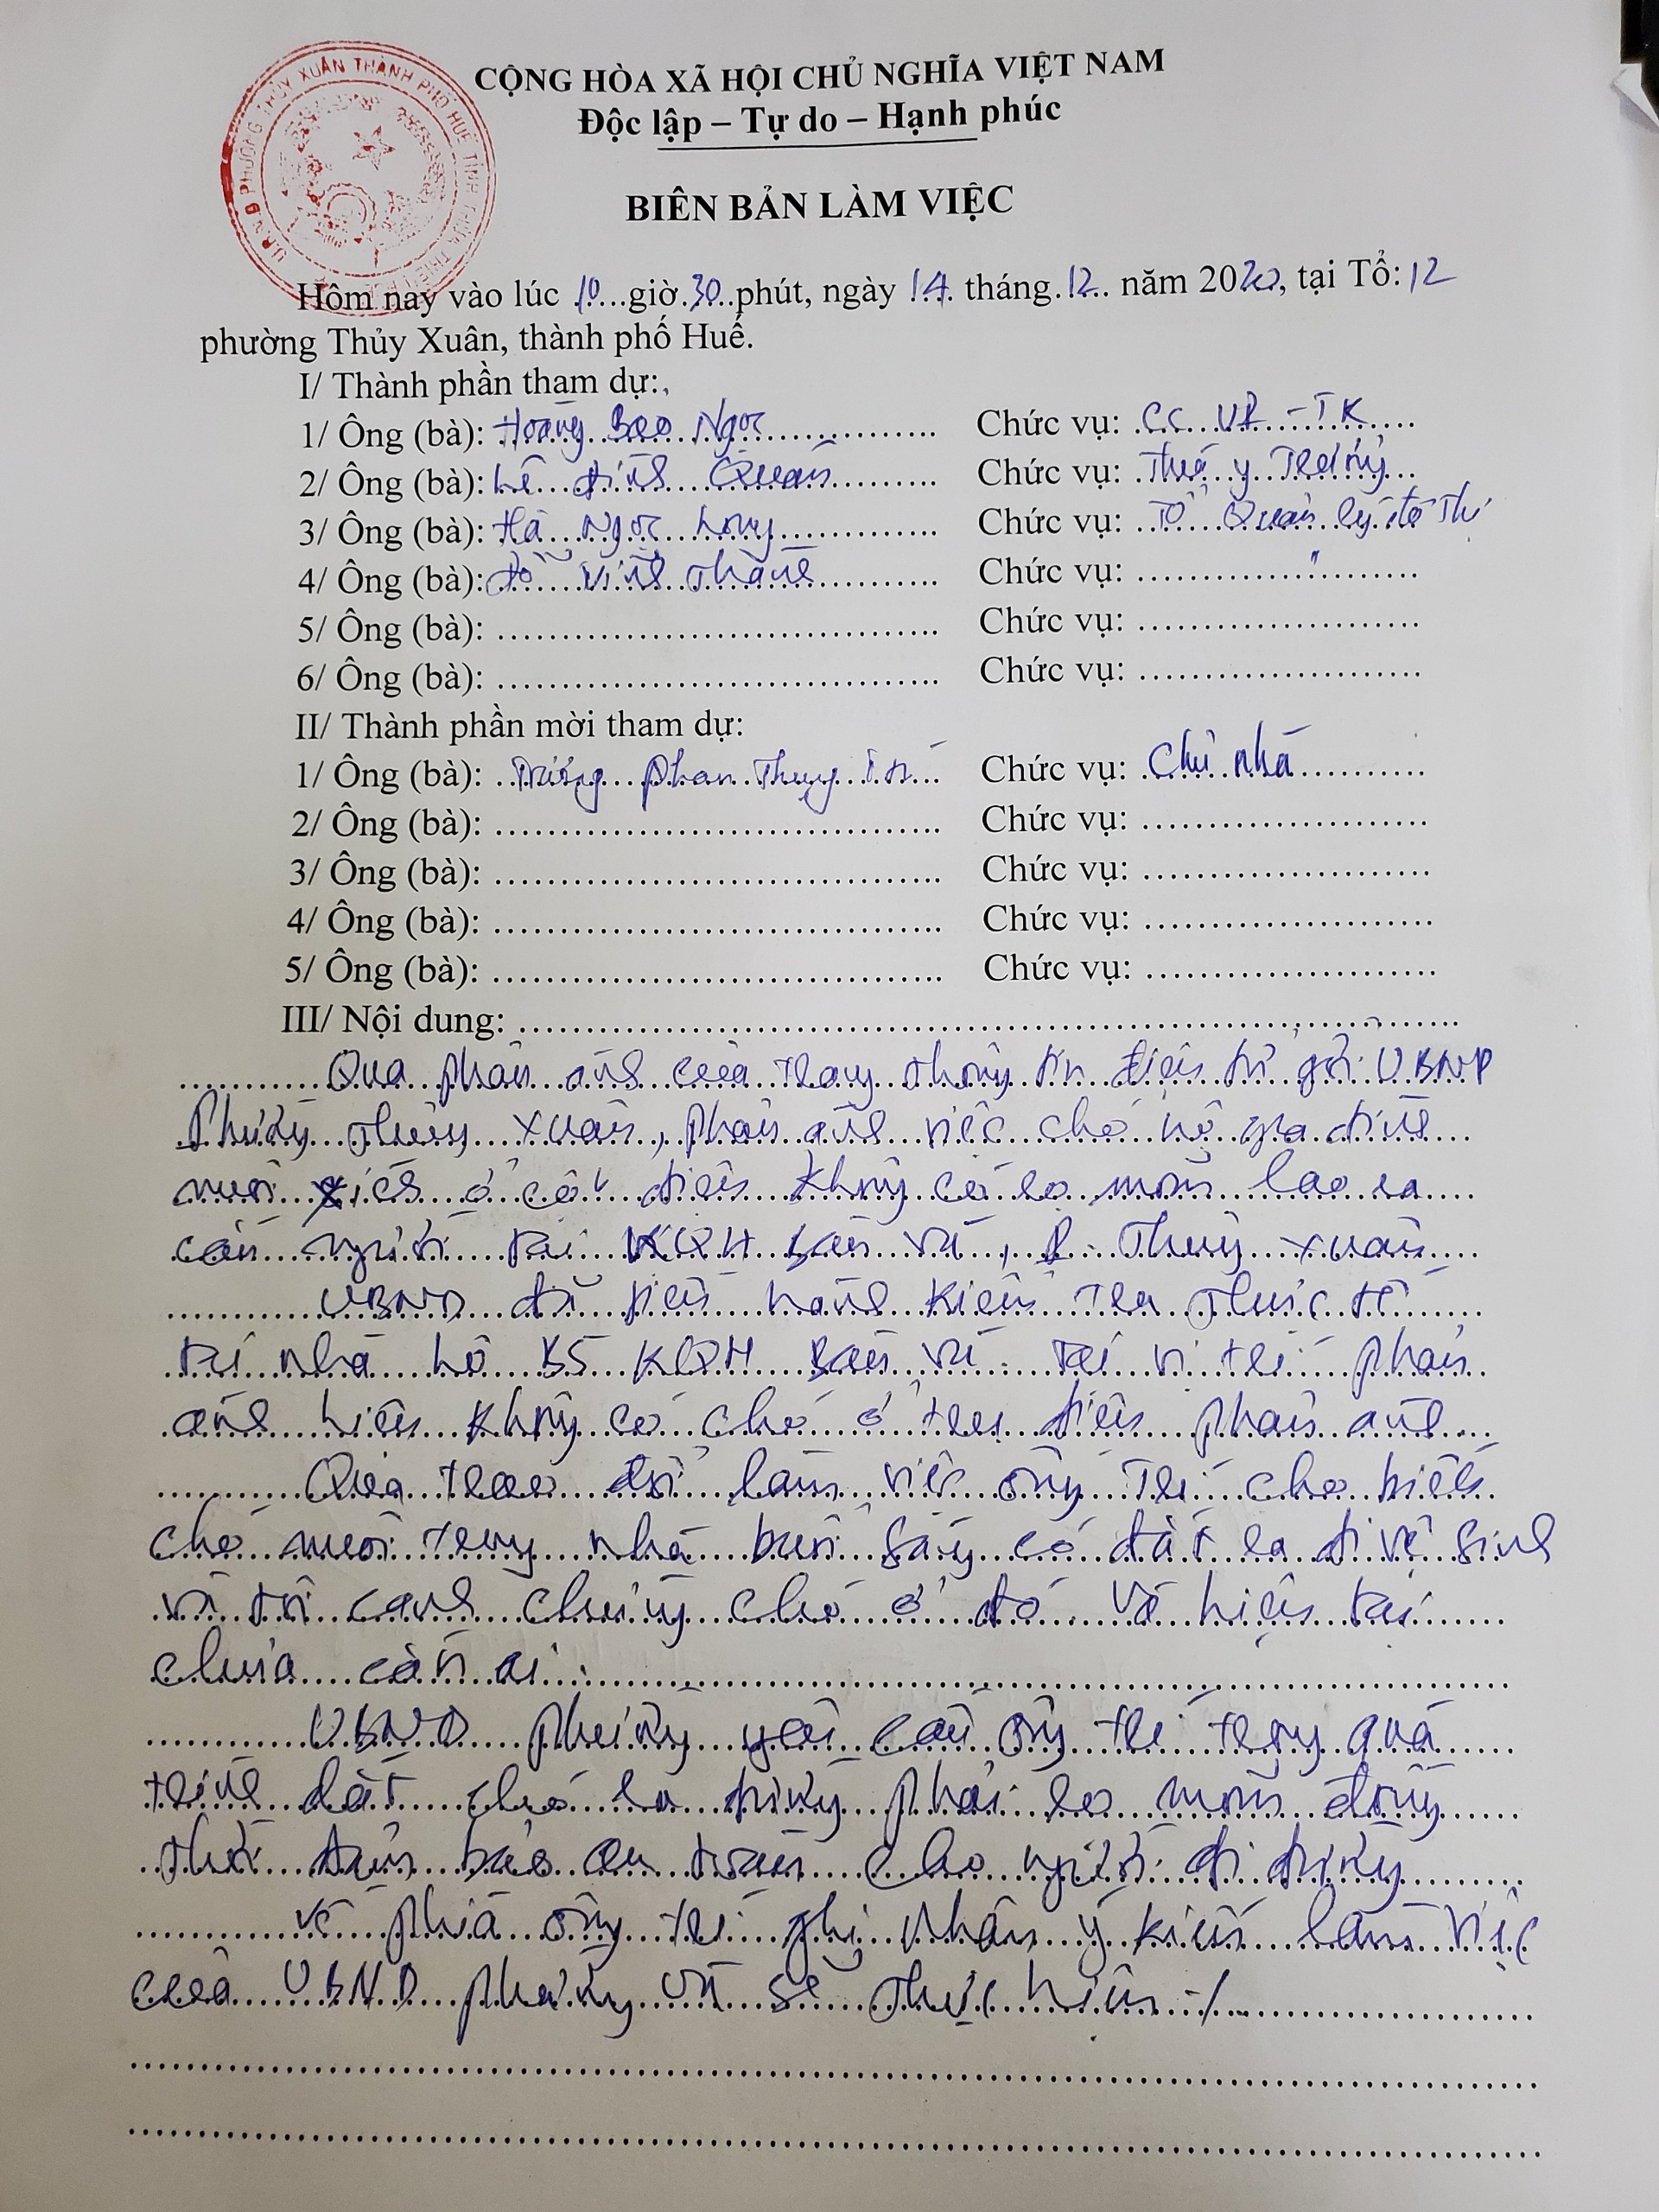 U.B.N.D PHƯỜNG THỦY XUÂN THÀNH PHỐ HUẾ TỈNH THỪA THIÊN
CỘNG HÒA XÃ HỘI CHỦ NGHĨA VIỆT NAM
Độc lập – Tự do – Hạnh phúc
BIÊN BẢN LÀM VIỆC
Hôm nay vào lúc 10 giờ 30 phút, ngày 14 tháng 12 năm 2020, tại Tổ: 12
phường Thủy Xuân, thành phố Huế.
I/ Thành phần tham dự:
1/ Ông (bà): Hoàng Bảo Ngọc Chức vụ: CC VP - TK
2/ Ông (bà): Lê Đình Quán Chức vụ: Thú y Trưởng
3/ Ông (bà): Hà Ngọc Long Chức vụ: Tổ Quản lý đô Thị
4/ Ông (bà): Đỗ Vĩnh Thành Chức vụ: "
5/ Ông (bà): Chức vụ:
6/ Ông (bà): Chức vụ:
II/ Thành phần mời tham dự:
1/ Ông (bà): Trương Phan Thụy Chức vụ: Chủ nhà
2/ Ông (bà): Chức vụ:
3/ Ông (bà): Chức vụ:
4/ Ông (bà): Chức vụ:
5/ Ông (bà): Chức vụ:
III/ Nội dung:
Qua phản ánh của trang thông tin điện tử gởi UBND
Phường Thủy Xuân, phản ánh việc chó hộ gia đình
nuôi xích ở cột điện không có rọ mõm lao ra
cắn người tại KQH Bàu Vá, P. Thủy Xuân
UBND đã tiến hành kiểm tra thực tế
tại nhà hộ B5 KQH Bàu Vá. Tại vị trí phản
ánh hiện không có chó ở trụ điện phản ánh
Qua trao đổi làm việc ông Trí cho biết
chó nuôi trong nhà buổi sáng có dắt ra đi vệ sinh
và tôi canh chừng chó ở đó. Và hiện tại
chưa cắn ai.
UBND phường yêu cầu ông Trí trong quá
trình dắt chó ra đường phải rọ mõm đồng
thời đảm bảo an toàn cho người đi đường
Về phía ông Trí ghi nhận ý kiến làm việc
của UBND phường và sẽ thực hiện ./.